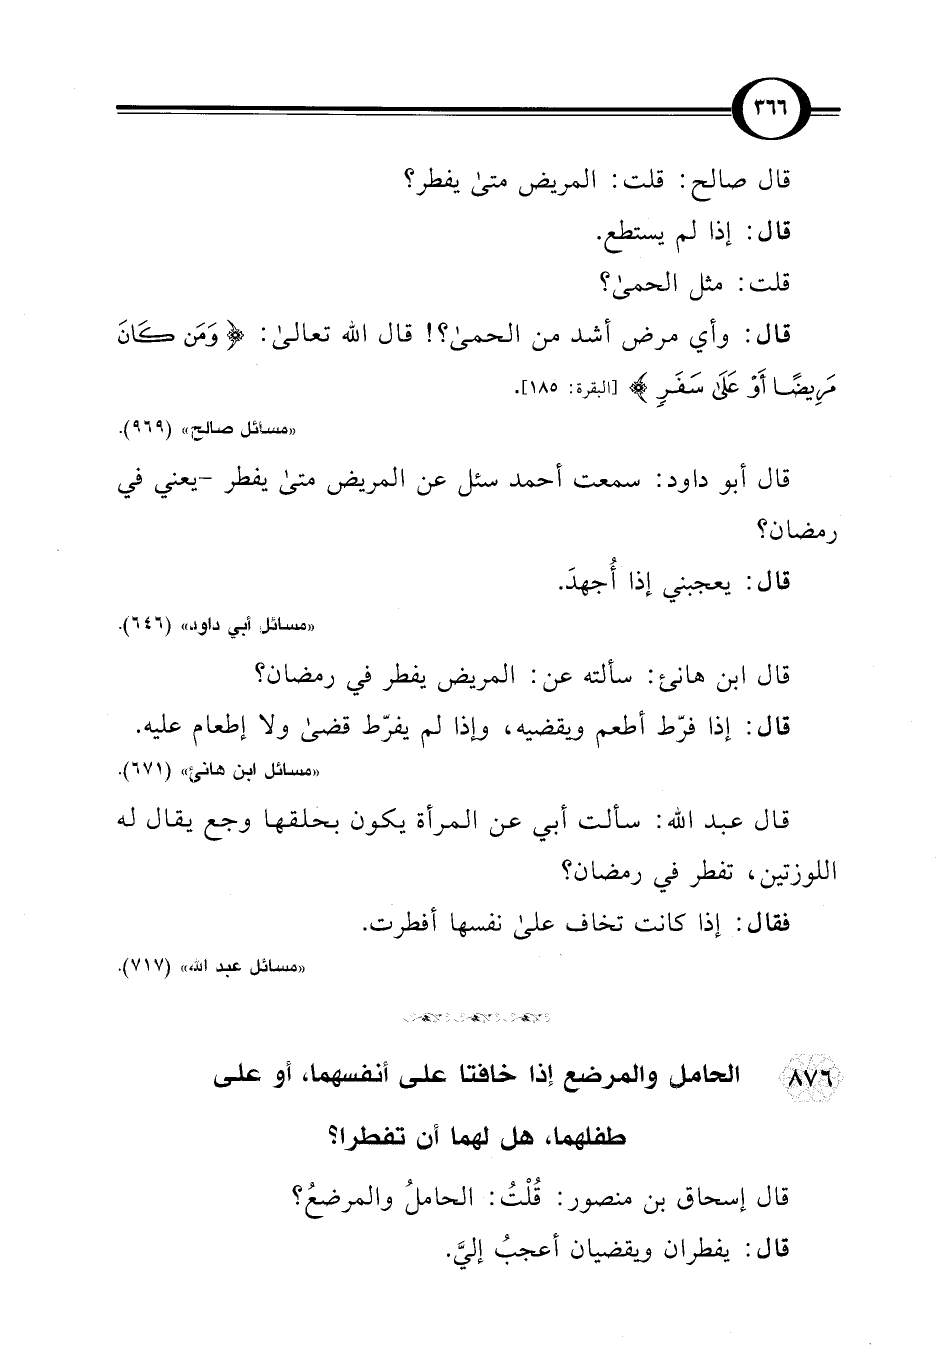 ٣٦٦
قال صالح: قلت: المريض متىٰ يفطر؟
قال: إذا لم يستطع.
قلت: مثل الحمىٰ؟
قال: وأي مرض أشد من الحمىٰ؟! قال الله تعالىٰ: ﴿وَمَن كَانَ
مَرِيضًا أَوْ عَلَىٰ سَفَرٍ﴾ [البقرة: ١٨٥].
«مسائل صالح» (٩٦٩).
قال أبو داود: سمعت أحمد سئل عن المريض متىٰ يفطر -يعني في
رمضان؟
قال: يعجبني إذا أُجهِدَ.
«مسائل أبي داود» (٦٤٦).
قال ابن هانئ: سألته عن: المريض يفطر في رمضان؟
قال: إذا فرّط أطعم ويقضيه، وإذا لم يفرّط قضىٰ ولا إطعام عليه.
«مسائل ابن هانئ» (٦٧١).
قال عبد الله: سألت أبي عن المرأة يكون بحلقها وجع يقال له
اللوزتين، تفطر في رمضان؟
فقال: إذا كانت تخاف علىٰ نفسها أفطرت.
«مسائل عبد الله» (٧١٧).
٨٧٦ الحامل والمرضع إذا خافتا على أنفسهما، أو على
طفلهما، هل لهما أن تفطرا؟
قال إسحاق بن منصور: قُلْتُ: الحاملُ والمرضعُ؟
قال: يفطران ويقضيان أعجبُ إليَّ.